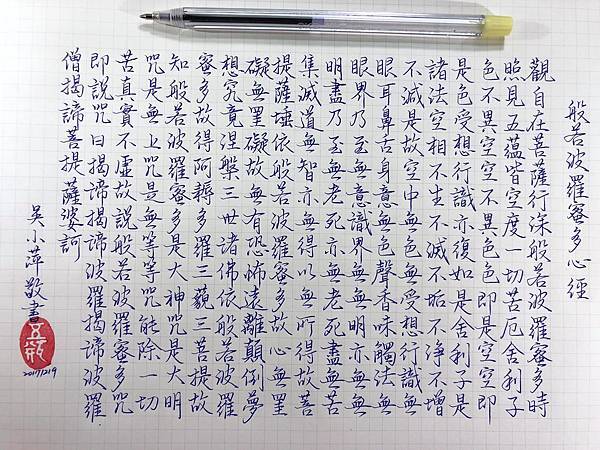 般若波羅蜜多心經
觀自在菩薩行深般若波羅蜜多時
照見五蘊皆空度一切苦厄舍利子
色不異空空不異色色即是空空即
是色受想行識亦復如是舍利子是
諸法空相不生不滅不垢不淨不增
不減是故空中無色無受想行識無
眼耳鼻舌身意無色聲香味觸法無
眼界乃至無意識界無無明亦無無
明盡乃至無老死亦無老死盡無苦
集滅道無智亦無得以無所得故菩
提薩埵依般若波羅蜜多故心無罣
礙無罣礙故無有恐怖遠離顛倒夢
想究竟涅槃三世諸佛依般若波羅
蜜多故得阿耨多羅三藐三菩提故
知般若波羅蜜多是大神咒是大明
咒是無上咒是無等等咒能除一切
苦真實不虛故說般若波羅蜜多咒
即說咒曰揭諦揭諦波羅揭諦波羅
僧揭諦菩提薩婆訶
吳小萍敬書